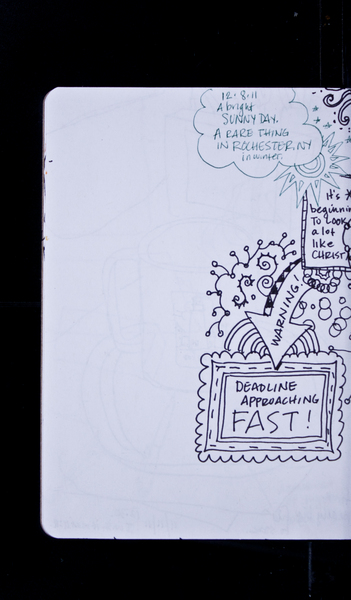 12.8.11
A bright
SUNNY DAY.
A RARE THING
IN ROCHESTER, NY
in winter.
It's
beginnin
To LOOK
a lot
like
CHRIST
WARNING!
DEADLINE
APPROACHING
FAST!